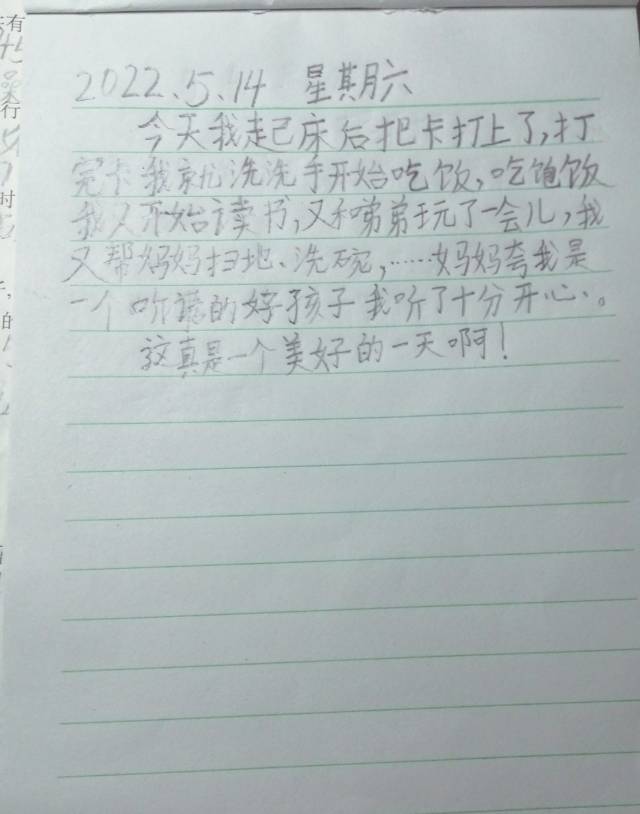 2022.5.14 星期六
今天我起床后把卡打上了,打
完卡我就洗洗手开始吃饭,吃饱饭
我又开始读书,又和弟弟玩了一会儿,我
又帮妈妈扫地、洗碗,……妈妈夸我是
一个 的好孩子我听了十分开心。
这真是一个美好的一天啊!
有
行
时
的